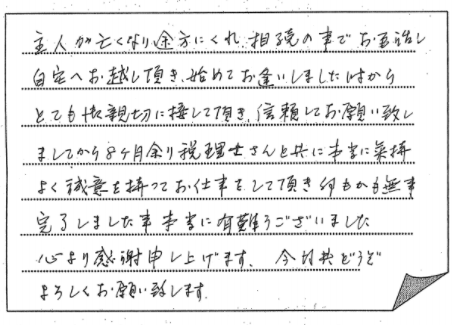 主人が亡くなり途方にくれ、相続の事でお電話し
自宅へお越し頂き、始めてお逢いしました時から
とても御親切に接して頂き、信頼してお願い致し
ましてから8ヶ月余り税理士さんと共に本当に気持
よく誠意を持ってお仕事をして頂き何もかも無事
完了しました事本当に有難うございました
心より感謝申し上げます。今後共どうぞ
よろしくお願い致します。